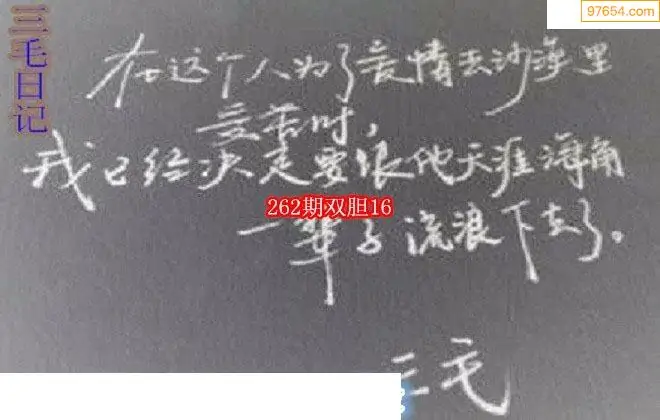 97654.com
三毛日记
在这个人为了爱情去沙漠里
受苦时,
我已经决定要跟他天涯海角
262期双胆16
一辈子流浪下去了。
三毛